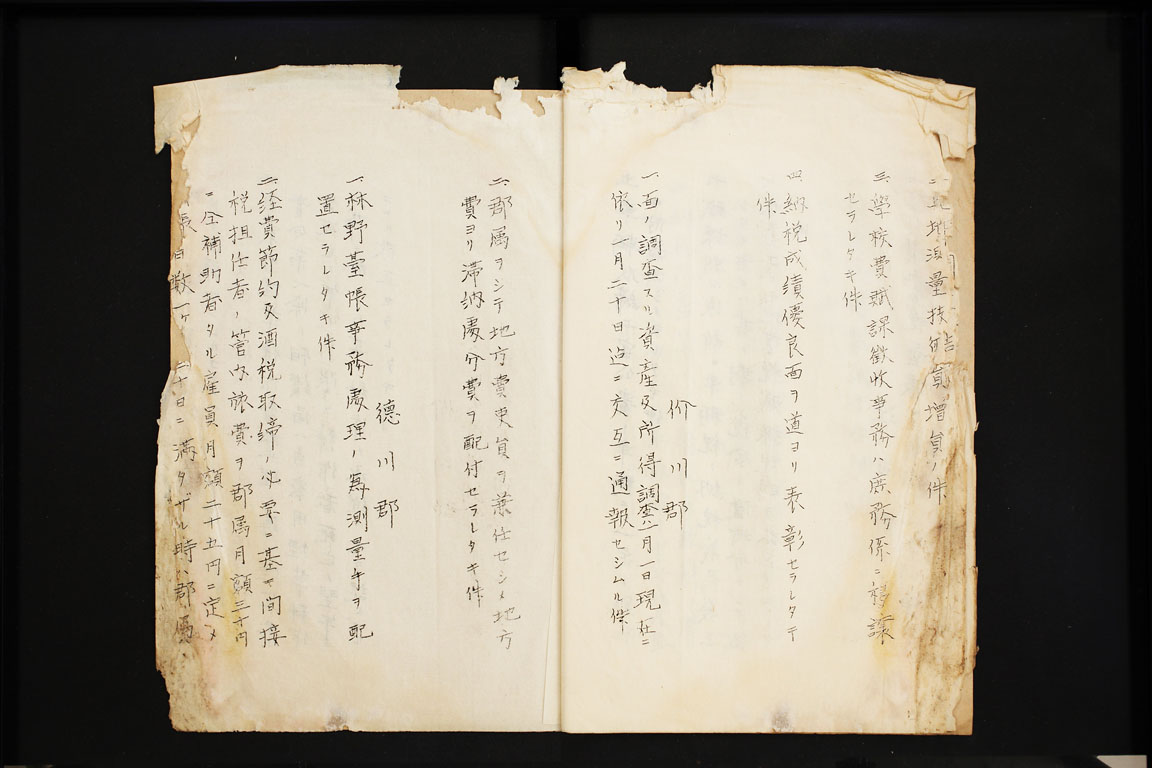 量技 員増員ノ件
三、學校費賦課徴收事務ハ庶務係ニ移課
セラレタキ件
四、納税成績優良面ヲ道ヨリ表彰セラレタキ
件
价川郡
一、面ノ調査スル資産及所得調査ハ一月一日現在ニ
依リ一月二十日迄ニ交互ニ通報セシムル件
二、郡属ヲシテ地方費吏員ヲ兼任セシメ地方
費ヨリ滞納處分費ヲ配付セラレタキ件
德川郡
一、林野臺帳事務處理ノ為測量手ヲ配
置セラレタキ件
二、経費節約及酒税取締ノ必要ニ基キ間接
税担任者ノ管内旅費ヲ郡属月額三十円
ニ仝補助者タル雇員月額二十五円ニ定メ
張日数一ケ 二十日ニ満タザル時ハ郡属